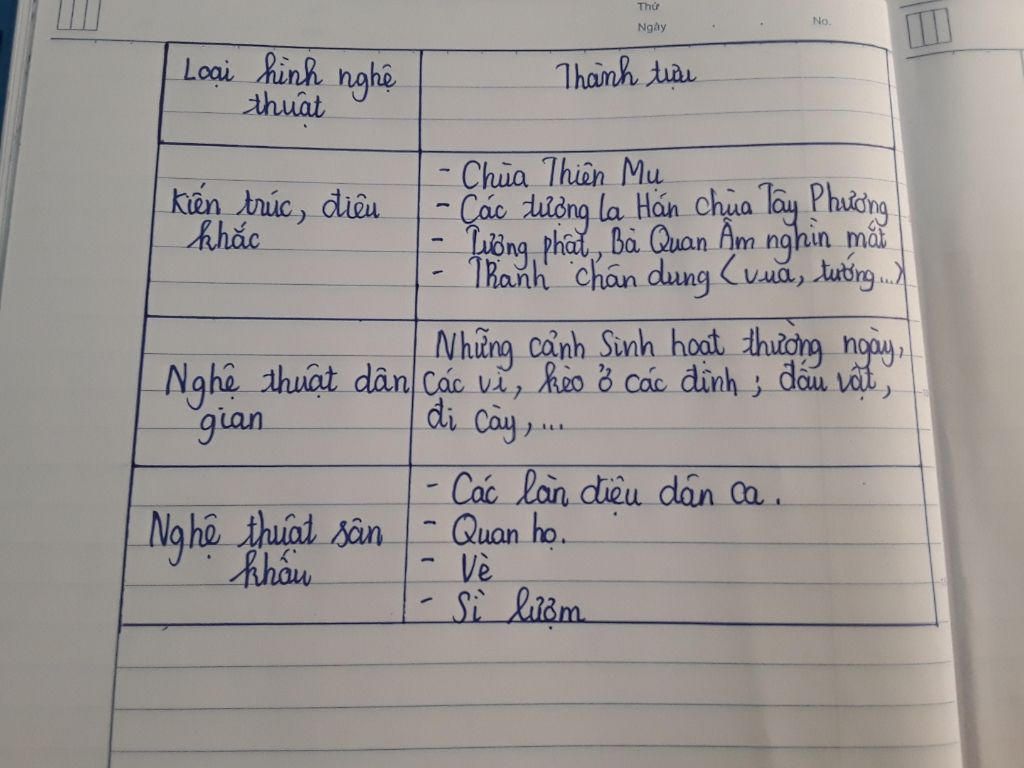 Thứ
Ngày . . No.
Loại hình nghệ thuật
Thành tựu
Kiến trúc, điêu khắc
- Chùa Thiên Mụ
- Các tượng la Hán chùa Tây Phương
- Tượng phật, Bà Quan Âm nghìn mắt
- Tranh chân dung (vua, tướng...)
Nghệ thuật dân gian
Những cảnh Sinh hoạt thường ngày,
các vì, kèo ở các đình ; đấu vật,
đi cày,...
Nghệ thuật sân khấu
- Các làn điệu dân ca.
- Quan họ.
- Vè
- Sì lượm